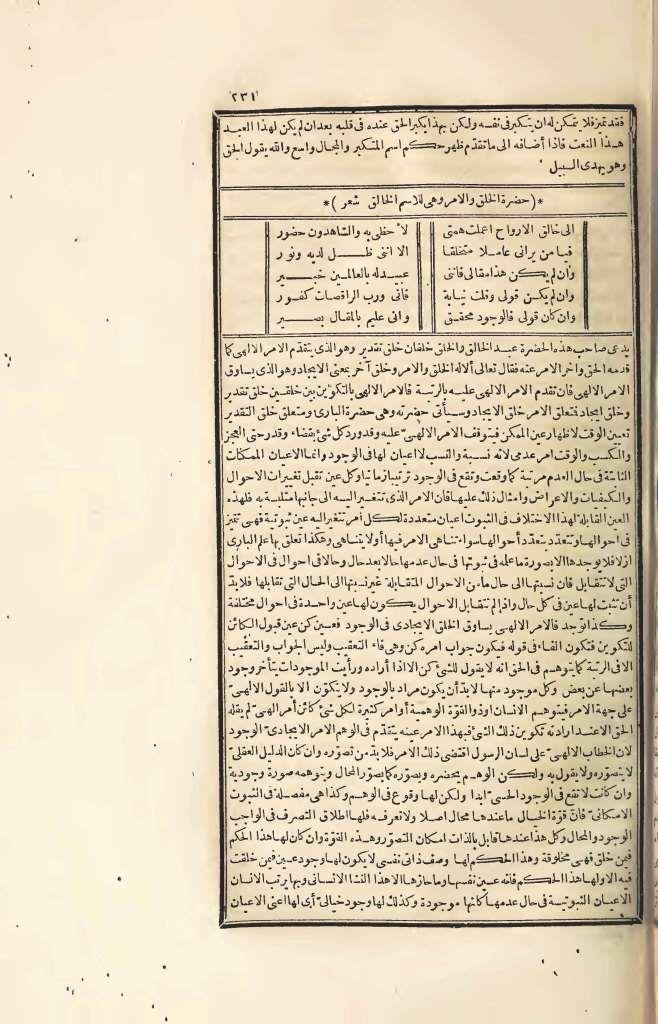 ٢٣١
فقد تميز فلا يتمكن له ان يتكبر فى نفسه ولكن بهذا يكبر الحق عنده فى قلبه بعد ان لم يكن لهذا العبد
هذا النعت فاذا أضافه الى ما تقدّم ظهر حكم اسم المتكبر والمجال واسع والله يقول الحق
وهو يهدى السبيل
*(حضرة الخلق والامر وهى للاسم الخالق شعر)*
الى خالق الارواح اعملت همتى لأحظى به والشاهدون حضور
فيا من يرانى عاملا متخلقا الا اننى ظل لديه ونور
وان لم يكن هذا مقالى فاننى عبيد له بالعالمين خبير
وان لم يكن قولى وقلت نيابة فانى ورب الراقصات كفور
وان كان قولى فالوجود محقق وانى عليم بالمقال بصير
يدعى صاحب هذه الحضرة عبد الخالق والخلق خلقان خلق تقدير وهو الذى يتقدّم الامر الالهى كما
قدمه الحق وأخر الامر عنه فقال تعالى ألا له الخلق والامر وخلق آخر بمعنى الايجاد وهو الذى يساوق
الامر الالهى فان تقدم الامر الالهى عليه بالرتبة فالامر الالهى بالتكوين بين خلقين خلق تقدير
وخلق ايجاد فمتعلق الامر خلق الايجاد وسيأتى حضرته وهى حضرة البارى ومتعلق خلق التقدير
تعيين الوقت لاظهار عين الممكن فيتوقف الامر الالهىّ عليه وقد ورد كل شئ بقضاء وقدر حتى العجز
والكسب والوقت امر عدمى لانه نسبة والنسب لا اعيان لها فى الوجود وانما الاعيان الممكنات
الثابتة فى حال العدم مرتبة كما وقعت وتقع فى الوجود ترتيبا زمانيا وكل عين تقبل تغييرات الاحوال
والكيفيات والاعراض وامثال ذلك عليها فان الامر الذى تتغير اليه الى جانبها متلبسة به فلهذه
العين القابلة لهذا الاختلاف فى الثبوت اعيان متعددة لكل أمر تتغير اليه عين ثبوتية فهى تتميز
فى احوالها وتتعدد بتعدد أحوالها سواء تناهى الامر فيها أو لا يتناهى وهكذا تعلق بها علم البارى
ازلا فلا يوجدها الا بصورة ما علمه فى ثبوتها فى حال عدمها حالا بعد حال وحالا فى احوال فى الاحوال
التى لا تتقابل فان نسبتها الى حال مّا من الاحوال المتقابلة غير نسبتها الى الحال التى تقابلها فلا بدّ
أن تثبت لها عين فى كل حال واذا لم تتقابل الاحوال يكون لها عين واحدة فى احوال مختلفة
وكذا توجد فالامر الالهى يساوق الخلق الايجادى فى الوجود فعين كن عين قبول الكائن
للتكوين فتكون الفاء فى قوله فيكون جواب امره كن وهى فاء التعقيب وليس الجواب والتعقيب
الا فى الرتبة كما يتوهم فى الحق انه لا يقول للشئ كن الا اذا أراده ورأيت الموجودات يتأخر وجود
بعضها عن بعض وكل موجود منها لا بدّ أن يكون مراد بالوجود ولا يتكوّن الا بالقول الالهىّ
على جهة الامر فيتوهم الانسان او ذو القوة الوهمية أوامر كثيرة لكل شئ كائن أمر الهىّ لم يقله
الحق الا عند ارادته تكوين ذلك الشئ فبهذا الامر عينه يتقدّم فى الوهم الامر الايجادىّ الوجود
لان الخطاب الالهىّ على لسان الرسول اقتضى ذلك الامر فلا بدّ من تصوّره وان كان الدليل العقلىّ
لا يتصوّره ولا يقول به ولكن الوهم يحضره ويصوّره كما يصوّر المحال ويتوهمه صورة وجودية
وان كانت لا تقع فى الوجود الحسىّ ابدا ولكن لها وقوع فى الوهم وكذا هى مفصلة فى الثبوت
الامكانىّ فانّ قوّة الخيال ما عندها محال اصلا ولا تعرفه فلها اطلاق التصرف فى الواجب
الوجود والمحال وكل هذا عندها قابل بالذات امكان التصوّر وهذه القوّة وان كان لها هذا الحكم
فيمن خلق فهى مخلوقة وهذا الحكم لها وصف ذاتى نفسى لا يكون لها وجود عين فيمن خلقت
فيه الا ولها هذا الحكم فانه عين نفسها وما حازها الا هذا النشأ الانسانى وبها يرتب الانسان
الاعيان الثبوتية فى حال عدمها كأنها موجودة وكذلك لها وجود خيالىّ أى لها اعنى الاعيان